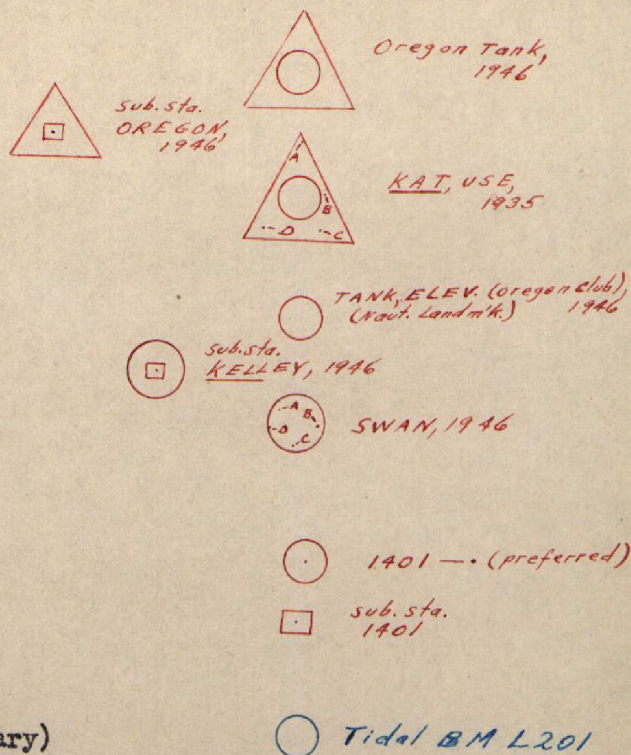 Oregon Tank,
1946
sub. sta.
OREGON,
1946
A
B
D
C
KAT, USE,
1935
TANK, ELEV. (Oregon Club),
(Naut. Landm'k.) 1946
sub. sta.
KELLEY, 1946
A
B
D
C
SWAN, 1946
1401 — • (preferred)
sub. sta.
1401
ary)
Tidal BM L201